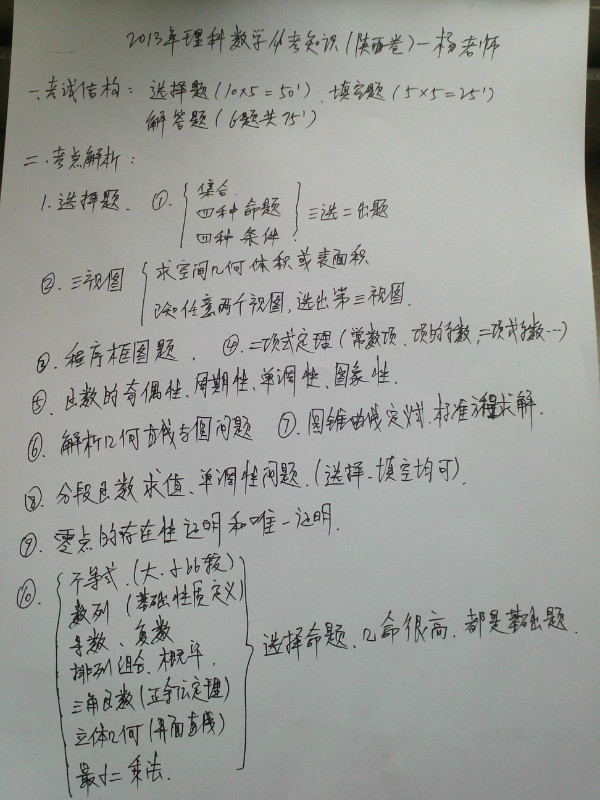 2013年理科数学必考知识(陕西卷)—杨老师
一.考试结构: 选择题(10×5=50')、填空题(5×5=25')
解答题(6题共75')
二.考点解析:
1.选择题. ①. 集合. 四种命题 四种条件. 三选二出题
②. 三视图 求空间几何体积或表面积
已知任意两个视图,选出第三视图.
③. 程序框图题. ④.二项式定理(常数项、项的系数,二项式系数…)
⑤. 函数的奇偶性、周期性、单调性、图象性.
⑥. 解析几何直线与圆问题 ⑦. 圆锥曲线定义式.标准方程求解.
⑧. 分段函数求值、单调性问题.(选择、填空均可).
⑨. 零点的存在性证明和唯一证明.
⑩. 不等式.(大.小比较)
数列 (基础性质定义)
导数、复数
排列组合、概率.
三角函数(正余弦定理)
立体几何(异面直线)
最小二乘法.
选择命题、几命很高、都是基础题.